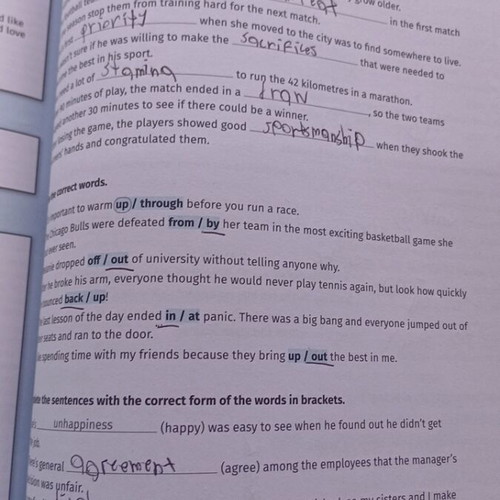 row older.
in the first match
stop them from training hard for the next match.
priority when she moved to the city was to find somewhere to live.
sure if he was willing to make the sacrifices that were needed to
the best in his sport.
a lot of stamina to run the 42 kilometres in a marathon.
minutes of play, the match ended in a draw, so the two teams
another 30 minutes to see if there could be a winner.
the game, the players showed good sportsmanship when they shook the
hands and congratulated them.
d like
d love
correct words.
important to warm up / through before you run a race.
Chicago Bulls were defeated from / by her team in the most exciting basketball game she
ever seen.
dropped off / out of university without telling anyone why.
he broke his arm, everyone thought he would never play tennis again, but look how quickly
bounced back / up!
last lesson of the day ended in / at panic. There was a big bang and everyone jumped out of
seats and ran to the door.
spending time with my friends because they bring up / out the best in me.
the sentences with the correct form of the words in brackets.
unhappiness (happy) was easy to see when he found out he didn't get
job.
general agreement (agree) among the employees that the manager's
was unfair.
sisters and I make